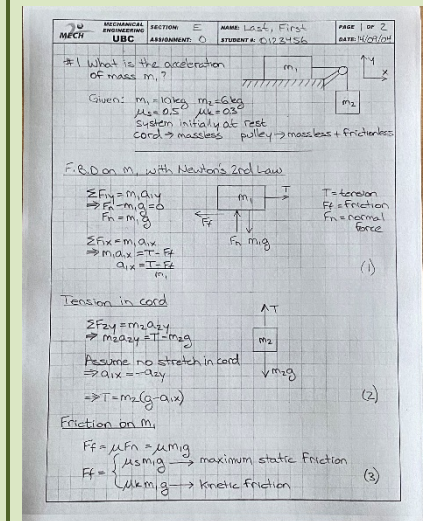 MECH
MECHANICAL ENGINEERING UBC
SECTION: E
ASSIGNMENT: 0
NAME: Last, First
STUDENT #: 0123456
PAGE 1 OF 2
DATE: 14/09/04
#1 What is the acceleration
of mass m₁?
m₁
y
x
m₂
Given: m₁=10kg m₂=6kg
μs=0.5 μk=0.3
System initially at rest
cord → massless pulley → massless + frictionless
F.B.D on m₁ with Newton's 2nd Law
ΣF₁y = m₁a₁y
⇒ Fn - m₁g = 0
Fn = m₁g
m₁
T
Ff
Fn m₁g
T = tension
Ff = friction
Fn = normal
force
ΣF₁x = m₁a₁x
⇒ m₁a₁x = T - Ff
a₁x = T - Ff
m₁
(1)
Tension in cord
ΣF₂y = m₂a₂y
⇒ m₂a₂y = T - m₂g
T
m₂
m₂g
Assume no stretch in cord
⇒ a₁x = -a₂y
⇒ T = m₂(g - a₁x)
(2)
Friction on m₁
Ff = μFn = μm₁g
Ff = { μsm₁g → maximum static friction
μkm₁g → kinetic friction
(3)